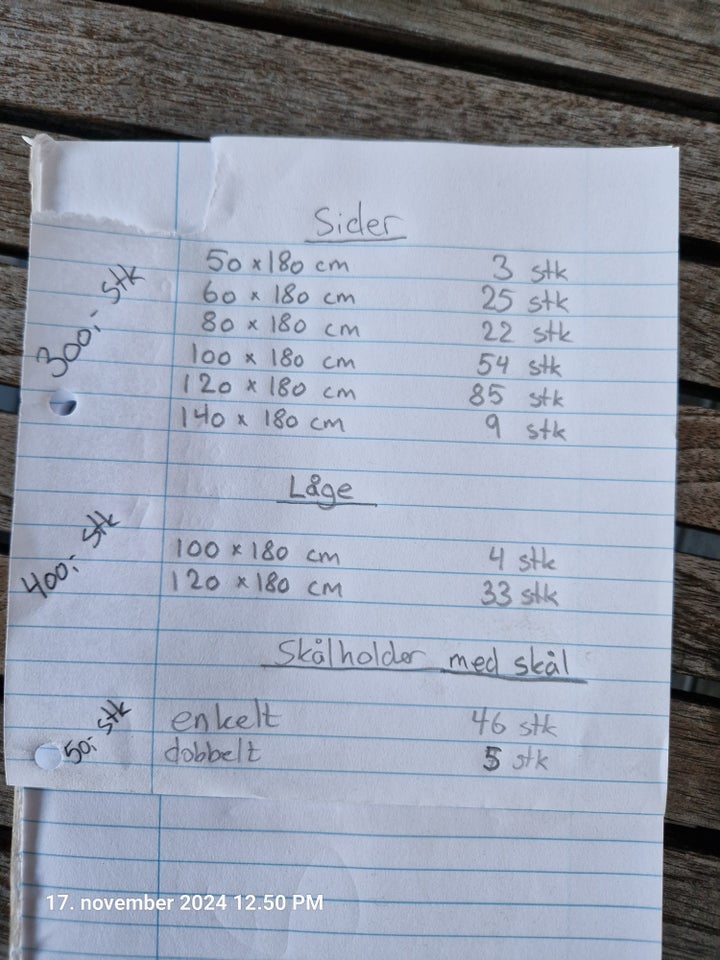 Sider
300,- stk
50 x 180 cm 3 stk
60 x 180 cm 25 stk
80 x 180 cm 22 stk
100 x 180 cm 54 stk
120 x 180 cm 85 stk
140 x 180 cm 9 stk
Låge
400,- stk
100 x 180 cm 4 stk
120 x 180 cm 33 stk
Skålholder med skål
50,- stk
enkelt 46 stk
dobbelt 5 stk
17. november 2024 12.50 PM